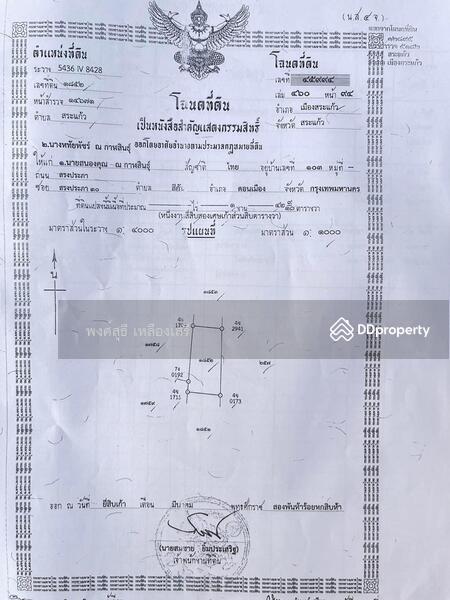 (น.ส.๔ จ.)
ตำแหน่งที่ดิน
ระวาง 5436 IV 8428
เลขที่ดิน ๑๘๕๒
หน้าสำรวจ
ตำบล สระแก้ว
โฉนดที่ดิน
เลขที่ ๔๕๙๙๔
เล่ม ๔๖๐ หน้า ๙๔
อำเภอ เมืองสระแก้ว
จังหวัด สระแก้ว
โฉนดที่ดิน
เป็นหนังสือสำคัญแสดงกรรมสิทธิ์
๒.นางหทัยพัชร์ ณ กาฬสินธุ์ ออกโดยอาศัยอำนาจตามประมวลกฎหมายที่ดิน
ให้แก่ ๑.นายสนองคุณ ณ กาฬสินธุ์ สัญชาติ ไทย อยู่บ้านเลขที่ ๑๐๓ หมู่ที่ -
ถนน สรงประภา
ซอย สรงประภา ๓๐ ตำบล สีกัน อำเภอ ดอนเมือง จังหวัด กรุงเทพมหานคร
ที่ดินแปลงนี้มีเนื้อที่ประมาณ - ไร่ ๑ งาน ตารางวา
มาตราส่วนในระวาง ๑: ๔๐๐๐ รูปแผนที่ มาตราส่วน ๑: ๑๐๐๐
น
๑๘๕๓
พงศ์สุธี เหลืองเสรี
DDproperty
4ข
2941
๑๘๕๒
๒๕๗
7ง
0192
4ข
4ข
0173
๑๘๕๑
ออก ณ วันที่ ยี่สิบเก้า เดือน มีนาคม พุทธศักราช สองพันห้าร้อยหกสิบห้า
(นายสมชาย อิ่มประเสริฐ)
เจ้าพนักงานที่ดิน